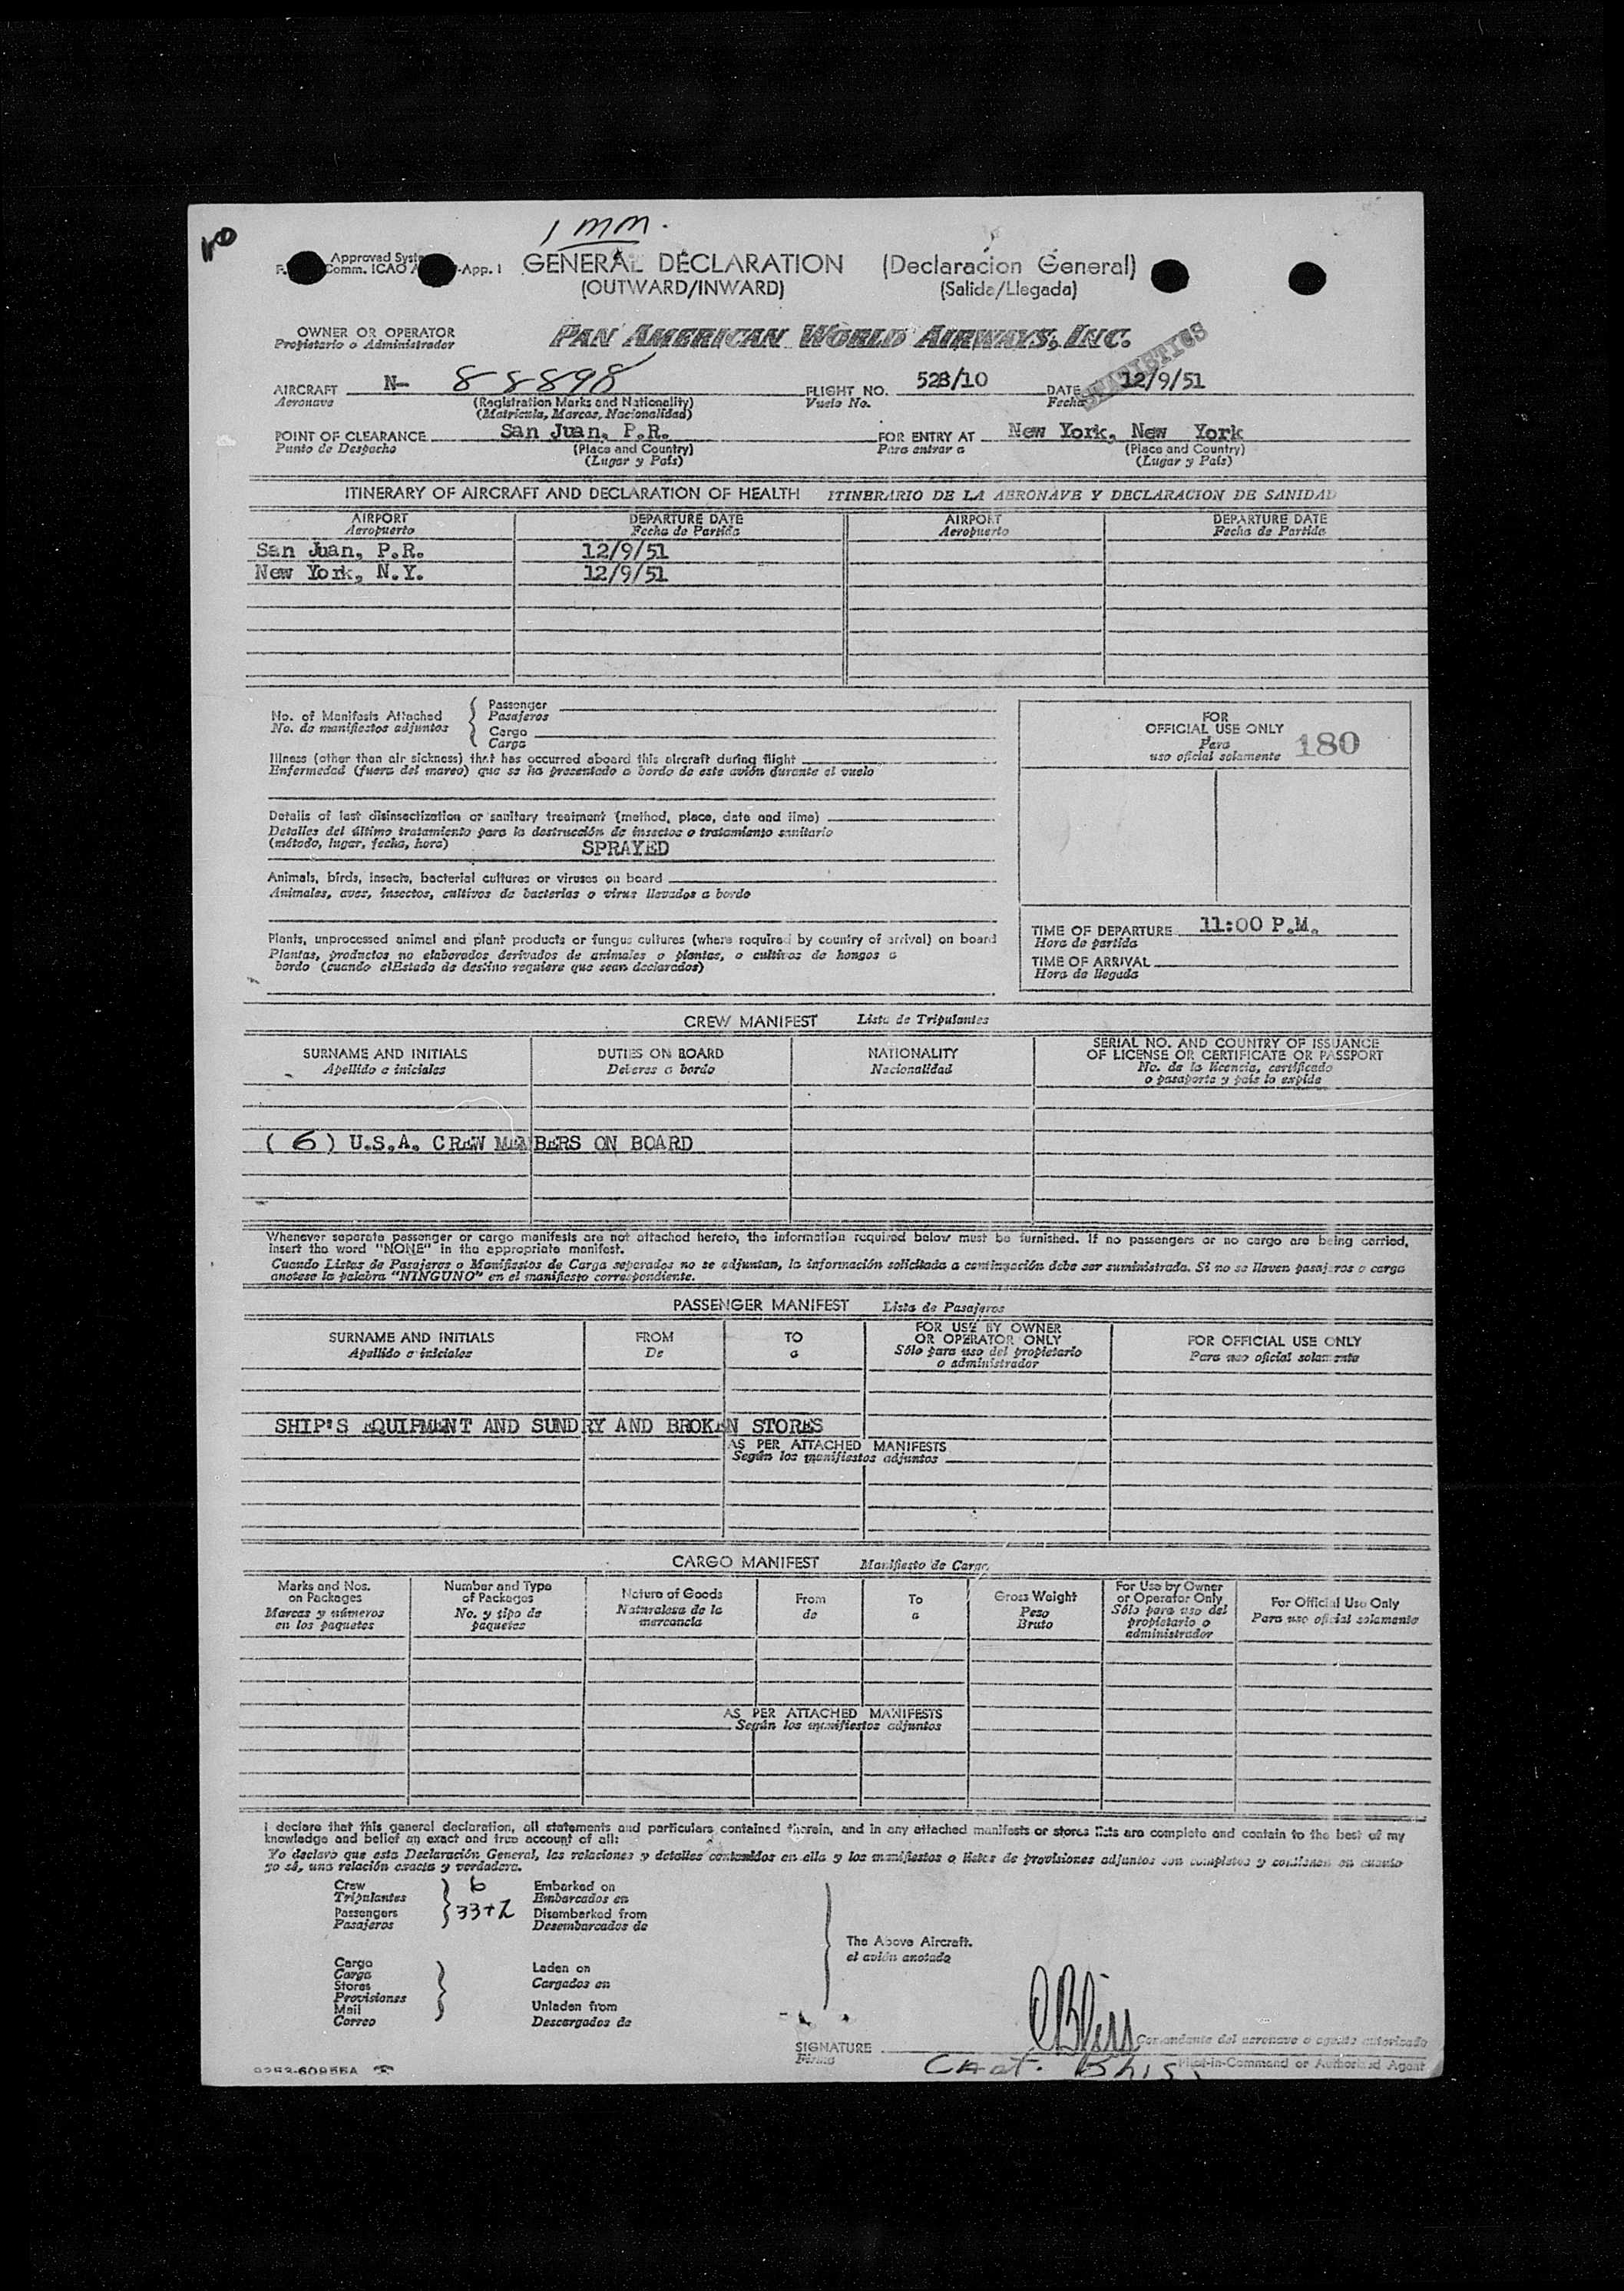 1 mm.
Approved Syste
Comm. ICAO A -App. 1
GENERAL DECLARATION (Declaracion General)
(OUTWARD/INWARD) (Salida/Llegada)
OWNER OR OPERATOR PAN AMERICAN WORLD AIRWAYS, INC.
Propietario o Administrador
STATISTICS
AIRCRAFT N- 88898 FLIGHT NO. 528/10 DATE 12/9/51
Aeronave (Registration Marks and Nationality) Vuelo No. Fecha
(Matricula, Marcas, Nacionalidad)
POINT OF CLEARANCE San Juan, P.R. FOR ENTRY AT New York, New York
Punto de Despacho (Place and Country) Para entrar a (Place and Country)
(Lugar y País) (Lugar y País)
ITINERARY OF AIRCRAFT AND DECLARATION OF HEALTH ITINERARIO DE LA AERONAVE Y DECLARACION DE SANIDAD
AIRPORT DEPARTURE DATE AIRPORT DEPARTURE DATE
Aeropuerto Fecha de Partida Aeropuerto Fecha de Partida
San Juan, P.R. 12/9/51
New York, N.Y. 12/9/51
No. of Manifests Attached
No. de manifiestos adjuntos
Passenger
Pasajeros
Cargo
Carga
Illness (other than air sickness) that has occurred aboard this aircraft during flight
Enfermedad (fuera del mareo) que se ha presentado a bordo de este avión durante el vuelo
Details of last disinsectization or sanitary treatment (method, place, date and time)
Detalles del último tratamiento para la destrucción de insectos o tratamiento sanitario
(método, lugar, fecha, hora) SPRAYED
Animals, birds, insects, bacterial cultures or viruses on board
Animales, aves, insectos, cultivos de bacterias o virus llevados a bordo
Plants, unprocessed animal and plant products or fungus cultures (where required by country of arrival) on board
Plantas, productos no elaborados derivados de animales o plantas, o cultivos de hongos a
bordo (cuando elEstado de destino requiere que sean declarados)
FOR
OFFICIAL USE ONLY
Para
uso oficial solamente 180
TIME OF DEPARTURE 11:00 P.M.
Hora de partida
TIME OF ARRIVAL
Hora de llegada
CREW MANIFEST Lista de Tripulantes
SURNAME AND INITIALS DUTIES ON BOARD NATIONALITY SERIAL NO. AND COUNTRY OF ISSUANCE
OF LICENSE OR CERTIFICATE OR PASSPORT
Apellido e iniciales Deberes a bordo Nacionalidad No. de la licencia, certificado
o pasaporte y país lo expide
( 6 ) U.S.A. CREW MEMBERS ON BOARD
Whenever separate passenger or cargo manifests are not attached hereto, the information required below must be furnished. If no passengers or no cargo are being carried,
insert the word "NONE" in the appropriate manifest.
Cuando Listas de Pasajeros o Manifiestos de Carga separados no se adjuntan, la información solicitada a continuación debe ser suministrada. Si no se llevan pasajeros o carga
anotese la palabra "NINGUNO" en el manifiesto correspondiente.
PASSENGER MANIFEST Lista de Pasajeros
SURNAME AND INITIALS FROM TO FOR USE BY OWNER
OR OPERATOR ONLY FOR OFFICIAL USE ONLY
Apellido e iniciales De a Sólo para uso del propietario
o administrador Para uso oficial solamente
SHIP'S EQUIPMENT AND SUNDRY AND BROKEN STORES
AS PER ATTACHED MANIFESTS
Según los manifiestos adjuntos
CARGO MANIFEST Manifiesto de Carga
Marks and Nos.
on Packages
Marcas y números
en los paquetes
Number and Type
of Packages
No. y tipo de
paquetes
Nature of Goods
Naturaleza de la
mercancia
From
de
To
a
Gross Weight
Peso
Bruto
For Use by Owner
or Operator Only
Sólo para uso del
propietario o
administrador
For Official Use Only
Para uso oficial solamente
AS PER ATTACHED MANIFESTS
Según los manifiestos adjuntos
I declare that this general declaration, all statements and particulars contained therein, and in any attached manifests or stores lists are complete and contain to the best of my
knowledge and belief an exact and true account of all:
Yo declaro que esta Declaración General, las relaciones y detalles contenidos en ella y los manifiestos o listas de provisiones adjuntos son completos y contienen en cuanto
yo sé, una relación exacta y verdadera.
Crew 6 Embarked on
Tripulantes Embarcados en
Passengers 33+2 Disembarked from
Pasajeros Desembarcados de
The Above Aircraft.
el avión anotado
Cargo
Carga
Stores
Provisiones
Mail
Correo
Laden on
Cargados en
Unladen from
Descargados de
SIGNATURE CBliss Comandante del aeronave o agente autorizado
Firma Capt. Bliss Pilot-in-Command or Authorized Agent